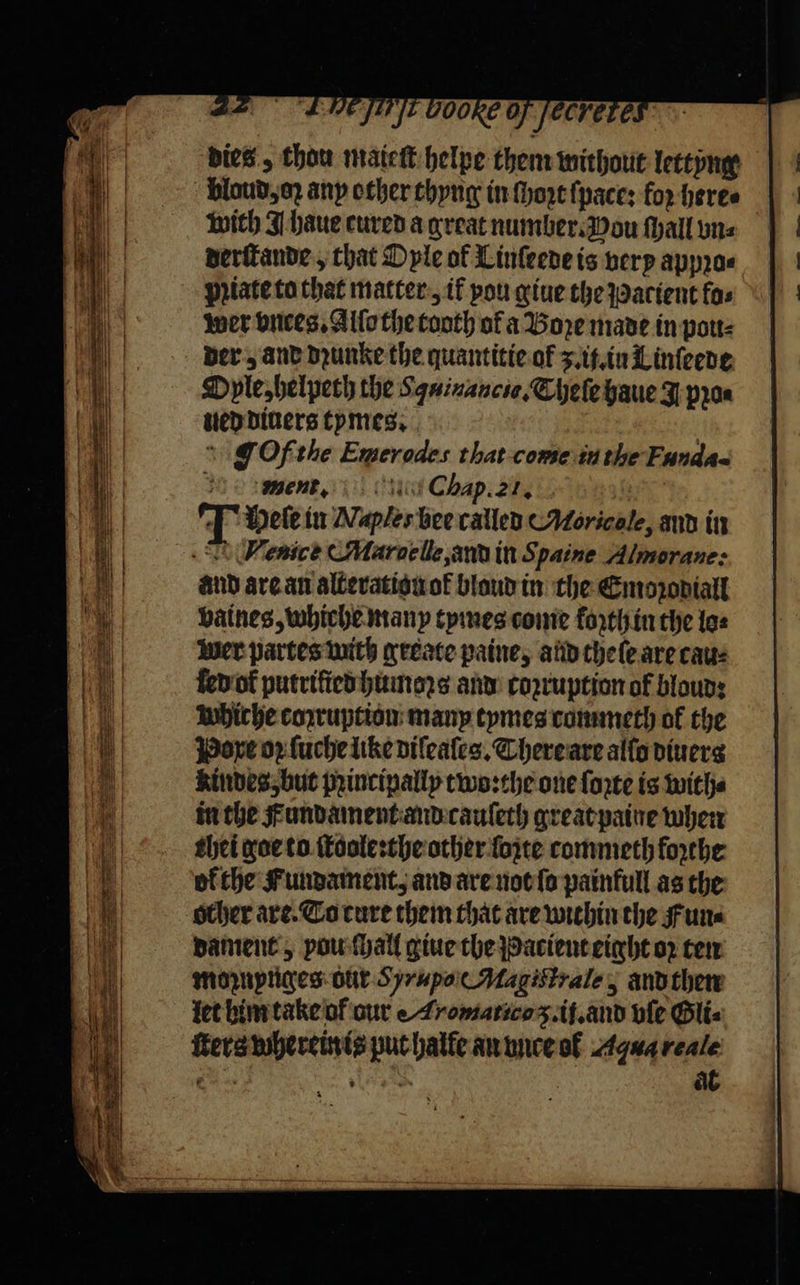 22 The first booke of secretes
dies, thou maiest helpe them without lettyng
bloud, or any other thyng in short space: for here-
with I haue cured a great number. You shall vn-
derstande, that Oyle of Linseede is very appro-
priate to that matter, if you giue the Pacient fo-
wer vnces. Also the tooth of a Bore made in pou-
der, and drunke the quantitie of ʒ.ij. in Linseede
Oyle, helpeth the Squinancie. These haue I pro-
ued diuers tymes.
¶ Of the Emerodes that come in the Funda-
ment, Chap. 21.
These in Naples bee called Moricole, and in
Venice Maroelle, and in Spaine Almorane:
and are an alteration of bloud in the Emorodiall
vaines, whiche many tymes come forth in the lo-
wer partes with greate paine, and these are cau-
sed of putrified humors and corruption of bloud:
whiche corruption many tymes commeth of the
Poxe or suche like diseases. There are also diuers
kindes, but principally two: the one sorte is with-
in the Fundament and causeth great paine when
thei goe to stoole: the other sorte commeth forthe
of the Fundament, and are not so painfull as the
other are. To cure them that are within the Fun-
dament, you shall giue the Pacient eight or ten
mornynges our Syrupo Magistrale, and then
let him take of our Aromatico ʒ.ij. and vse Gli-
sters wherein is put halfe an vnce of Aqua reale
at